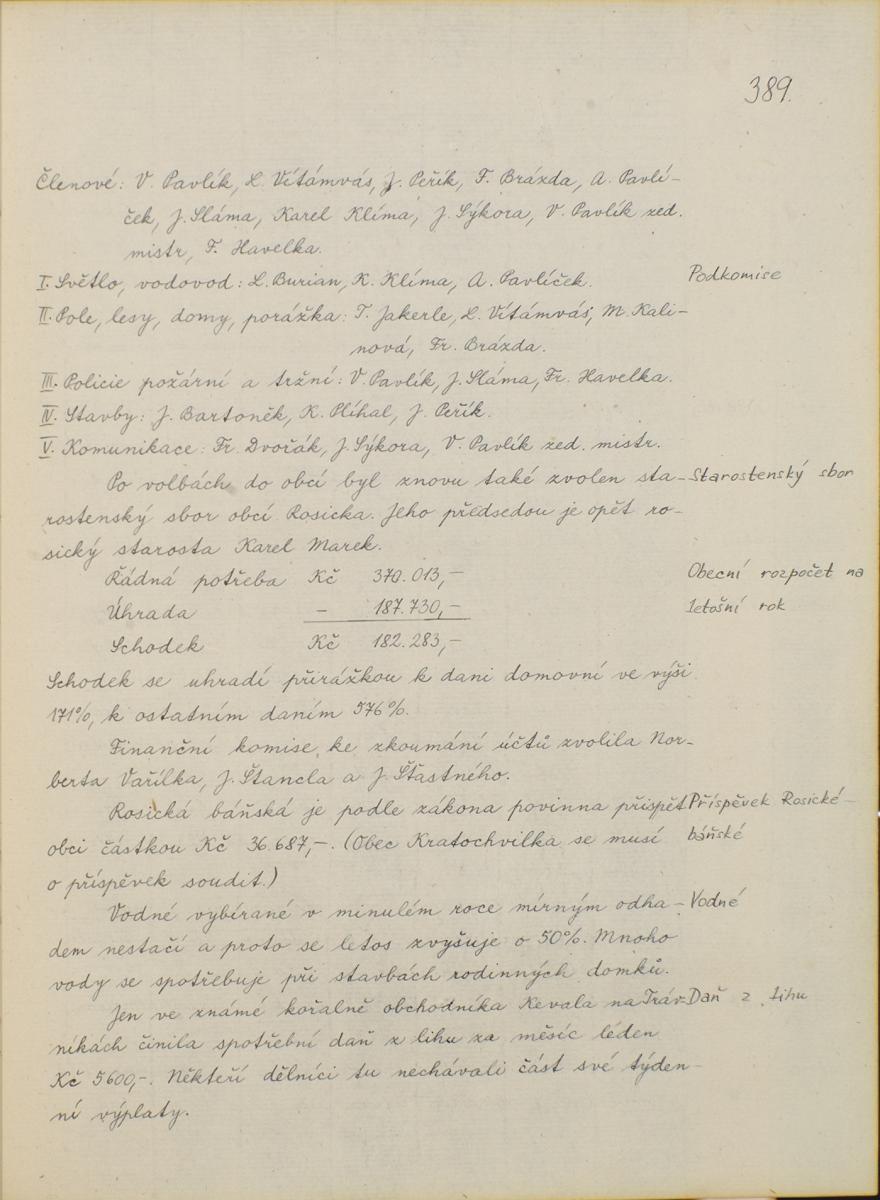 389.
Členové: V. Pavlík, L. Vítámvás, J. Peřík, F. Brázda, A. Pavlí-
ček, J. Sláma, Karel Klíma, J. Sýkora, V. Pavlík zed.
mistr, F. Havelka.
I. Světlo, vodovod: L. Burian, K. Klíma, A. Pavlíček.
Podkomise
II. Pole, lesy, domy, porážka: T. Jakerle, L. Vítámvás, M. Kali-
nová, Fr. Brázda.
III. Policie požární a tržní: V. Pavlík, J. Sláma, Fr. Havelka.
IV. Stavby: J. Bartoněk, K. Plíhal, J. Peřík.
V. Komunikace: Fr. Dvořák, J. Sýkora, V. Pavlík zed. mistr.
Po volbách do obcí byl znovu také zvolen sta-
Starostenský sbor
rostenský sbor obcí Rosicka. Jeho předsedou je opět ro-
sický starosta Karel Marek.
Řádná potřeba Kč 370.013,-
Obecní rozpočet na
Úhrada - 187.730,-
letošní rok
Schodek Kč 182.283,-
Schodek se uhradí přirážkou k dani domovní ve výši
171%, k ostatním daním 576%.
Finanční komise ke zkoumání účtů zvolila Nor-
berta Vařílka, J. Štancla a J. Šťastného.
Rosická báňská je podle zákona povinna přispět
Příspěvek Rosické-
obci částkou Kč 36.687,-. (Obec Kratochvilka se musí
báňské
o příspěvek soudit.)
Vodné vybírané v minulém roce mírným odha-
Vodné
dem nestačí a proto se letos zvyšuje o 50%. Mnoho
vody se spotřebuje při stavbách rodinných domků.
Jen ve známé kořalně obchodníka Kevala na Tráv-
Daň z lihu
níkách činila spotřební daň z lihu za měsíc léden
Kč 5600,-. Někteří dělníci tu nechávali část své týden-
ní výplaty.